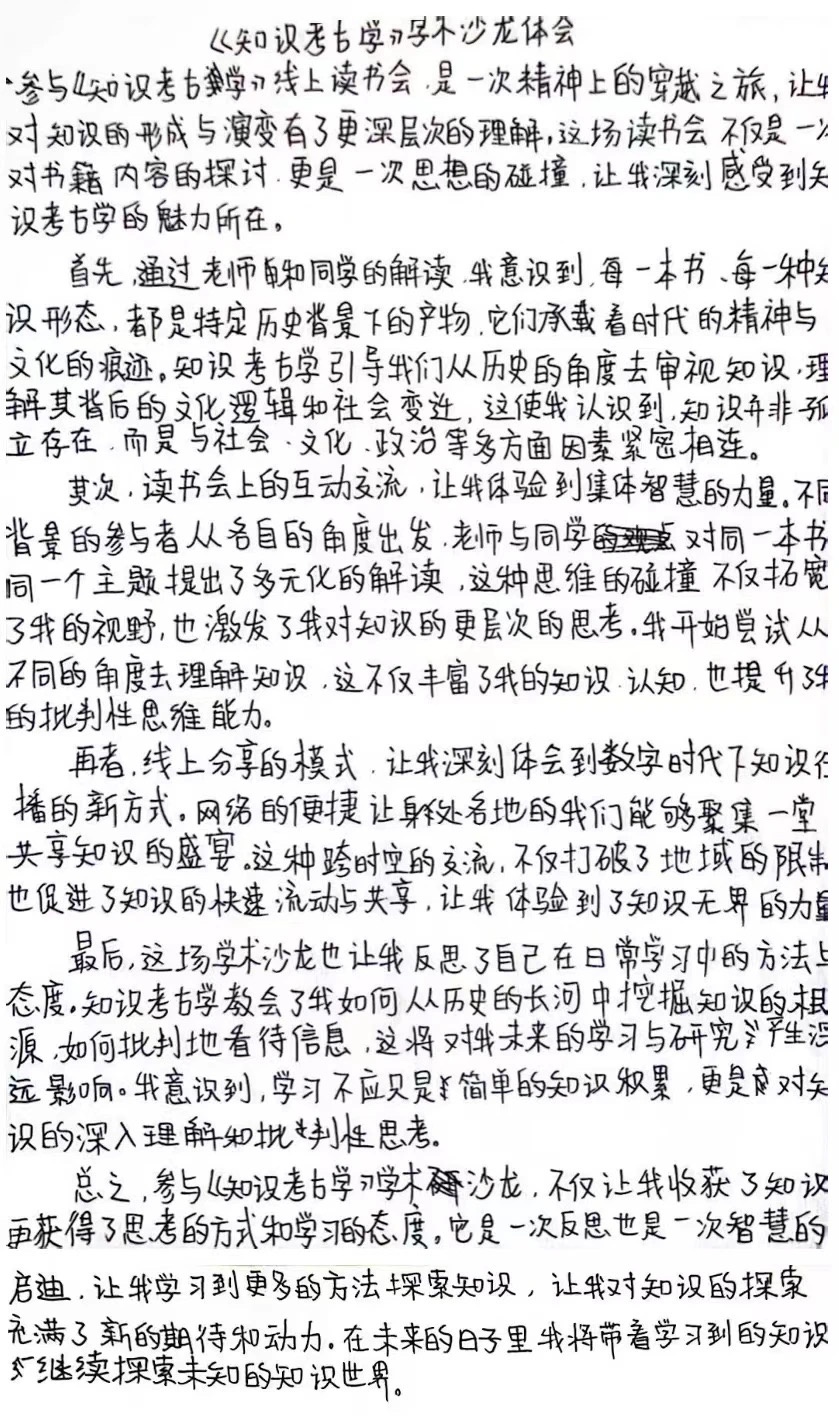 《知识考古学》学术沙龙体会
参与《知识考古学》线上读书会,是一次精神上的穿越之旅,让我
对知识的形成与演变有了更深层次的理解。这场读书会不仅是一次
对书籍内容的探讨,更是一次思想的碰撞,让我深刻感受到知
识考古学的魅力所在。
首先,通过老师和同学的解读,我意识到,每一本书、每一种知
识形态,都是特定历史背景下的产物,它们承载着时代的精神与
文化的痕迹。知识考古学引导我们从历史的角度去审视知识,理
解其背后的文化逻辑和社会变迁,这使我认识到,知识并非孤
立存在,而是与社会、文化、政治等多方面因素紧密相连。
其次,读书会上的互动交流,让我体验到集体智慧的力量。不同
背景的参与者从各自的角度出发,老师与同学对同一本书
同一个主题提出了多元化的解读,这种思维的碰撞不仅拓宽
了我的视野,也激发了我对知识的更层次的思考。我开始尝试从
不同的角度去理解知识,这不仅丰富了我的知识认知,也提升了我
的批判性思维能力。
再者,线上分享的模式,让我深刻体会到数字时代下知识传
播的新方式。网络的便捷让身处各地的我们能够聚集一堂
共享知识的盛宴。这种跨时空的交流,不仅打破了地域的限制
也促进了知识的快速流动与共享,让我体验到了知识无界的力量
最后,这场学术沙龙也让我反思了自己在日常学习中的方法与
态度。知识考古学教会了我如何从历史的长河中挖掘知识的根
源,如何批判地看待信息,这将对我未来的学习与研究产生深
远影响。我意识到,学习不应只是简单的知识积累,更是对知
识的深入理解和批判性思考。
总之,参与《知识考古学》学术沙龙,不仅让我收获了知识
更获得了思考的方式和学习的态度。它是一次反思也是一次智慧的
启迪,让我学习到更多的方法探索知识,让我对知识的探索
充满了新的期待和动力。在未来的日子里我将带着学习到的知识
继续探索未知的知识世界。